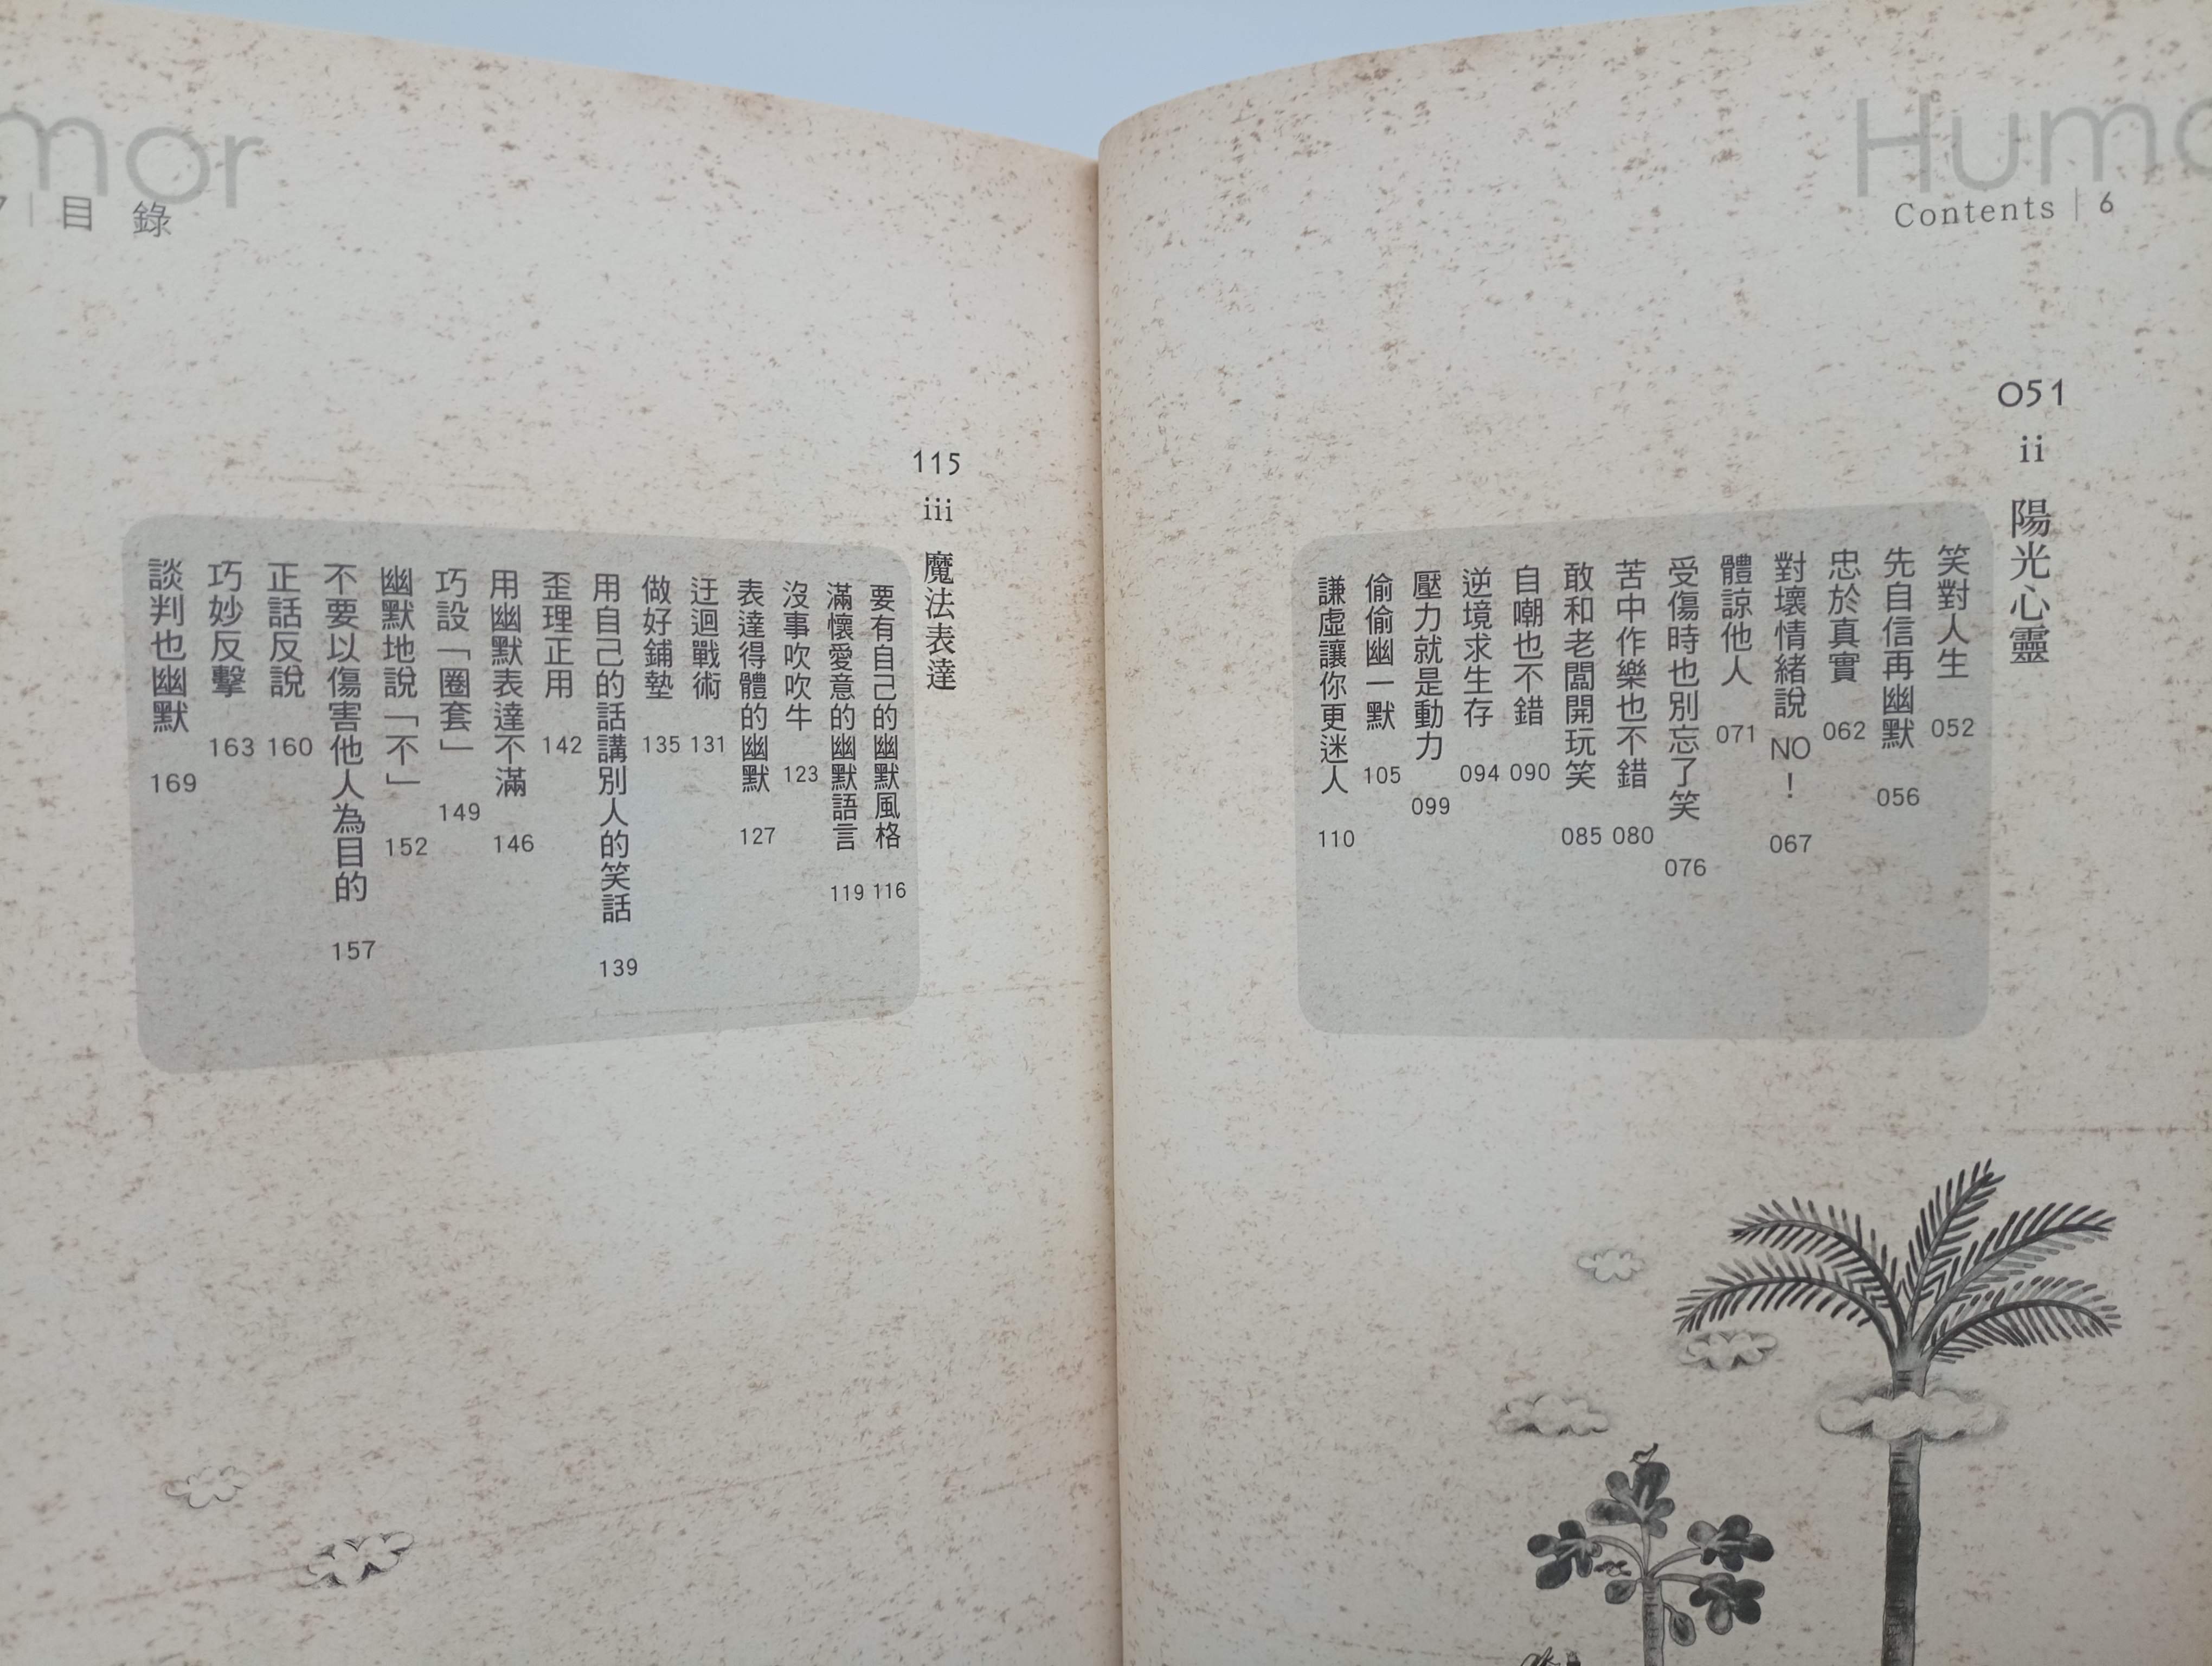 Humo
Contents | 6
051 ii 陽光心靈
笑對人生 052
先自信再幽默 056
忠於真實 062
對壞情緒說 NO！ 067
體諒他人 071
受傷時也別忘了笑 076
苦中作樂也不錯 080
敢和老闆開玩笑 085
自嘲也不錯 090
逆境求生存 094
壓力就是動力 099
偷偷幽一默 105
謙虛讓你更迷人 110
mor
7 | 目錄
115 iii 魔法表達
要有自己的幽默風格 116
滿懷愛意的幽默語言 119
沒事吹吹牛 123
表達得體的幽默 127
迂迴戰術 131
做好鋪墊 135
用自己的話講別人的笑話 139
歪理正用 142
用幽默表達不滿 146
巧設「圈套」 149
幽默地說「不」 152
不要以傷害他人為目的 157
正話反說 160
巧妙反擊 163
談判也幽默 169